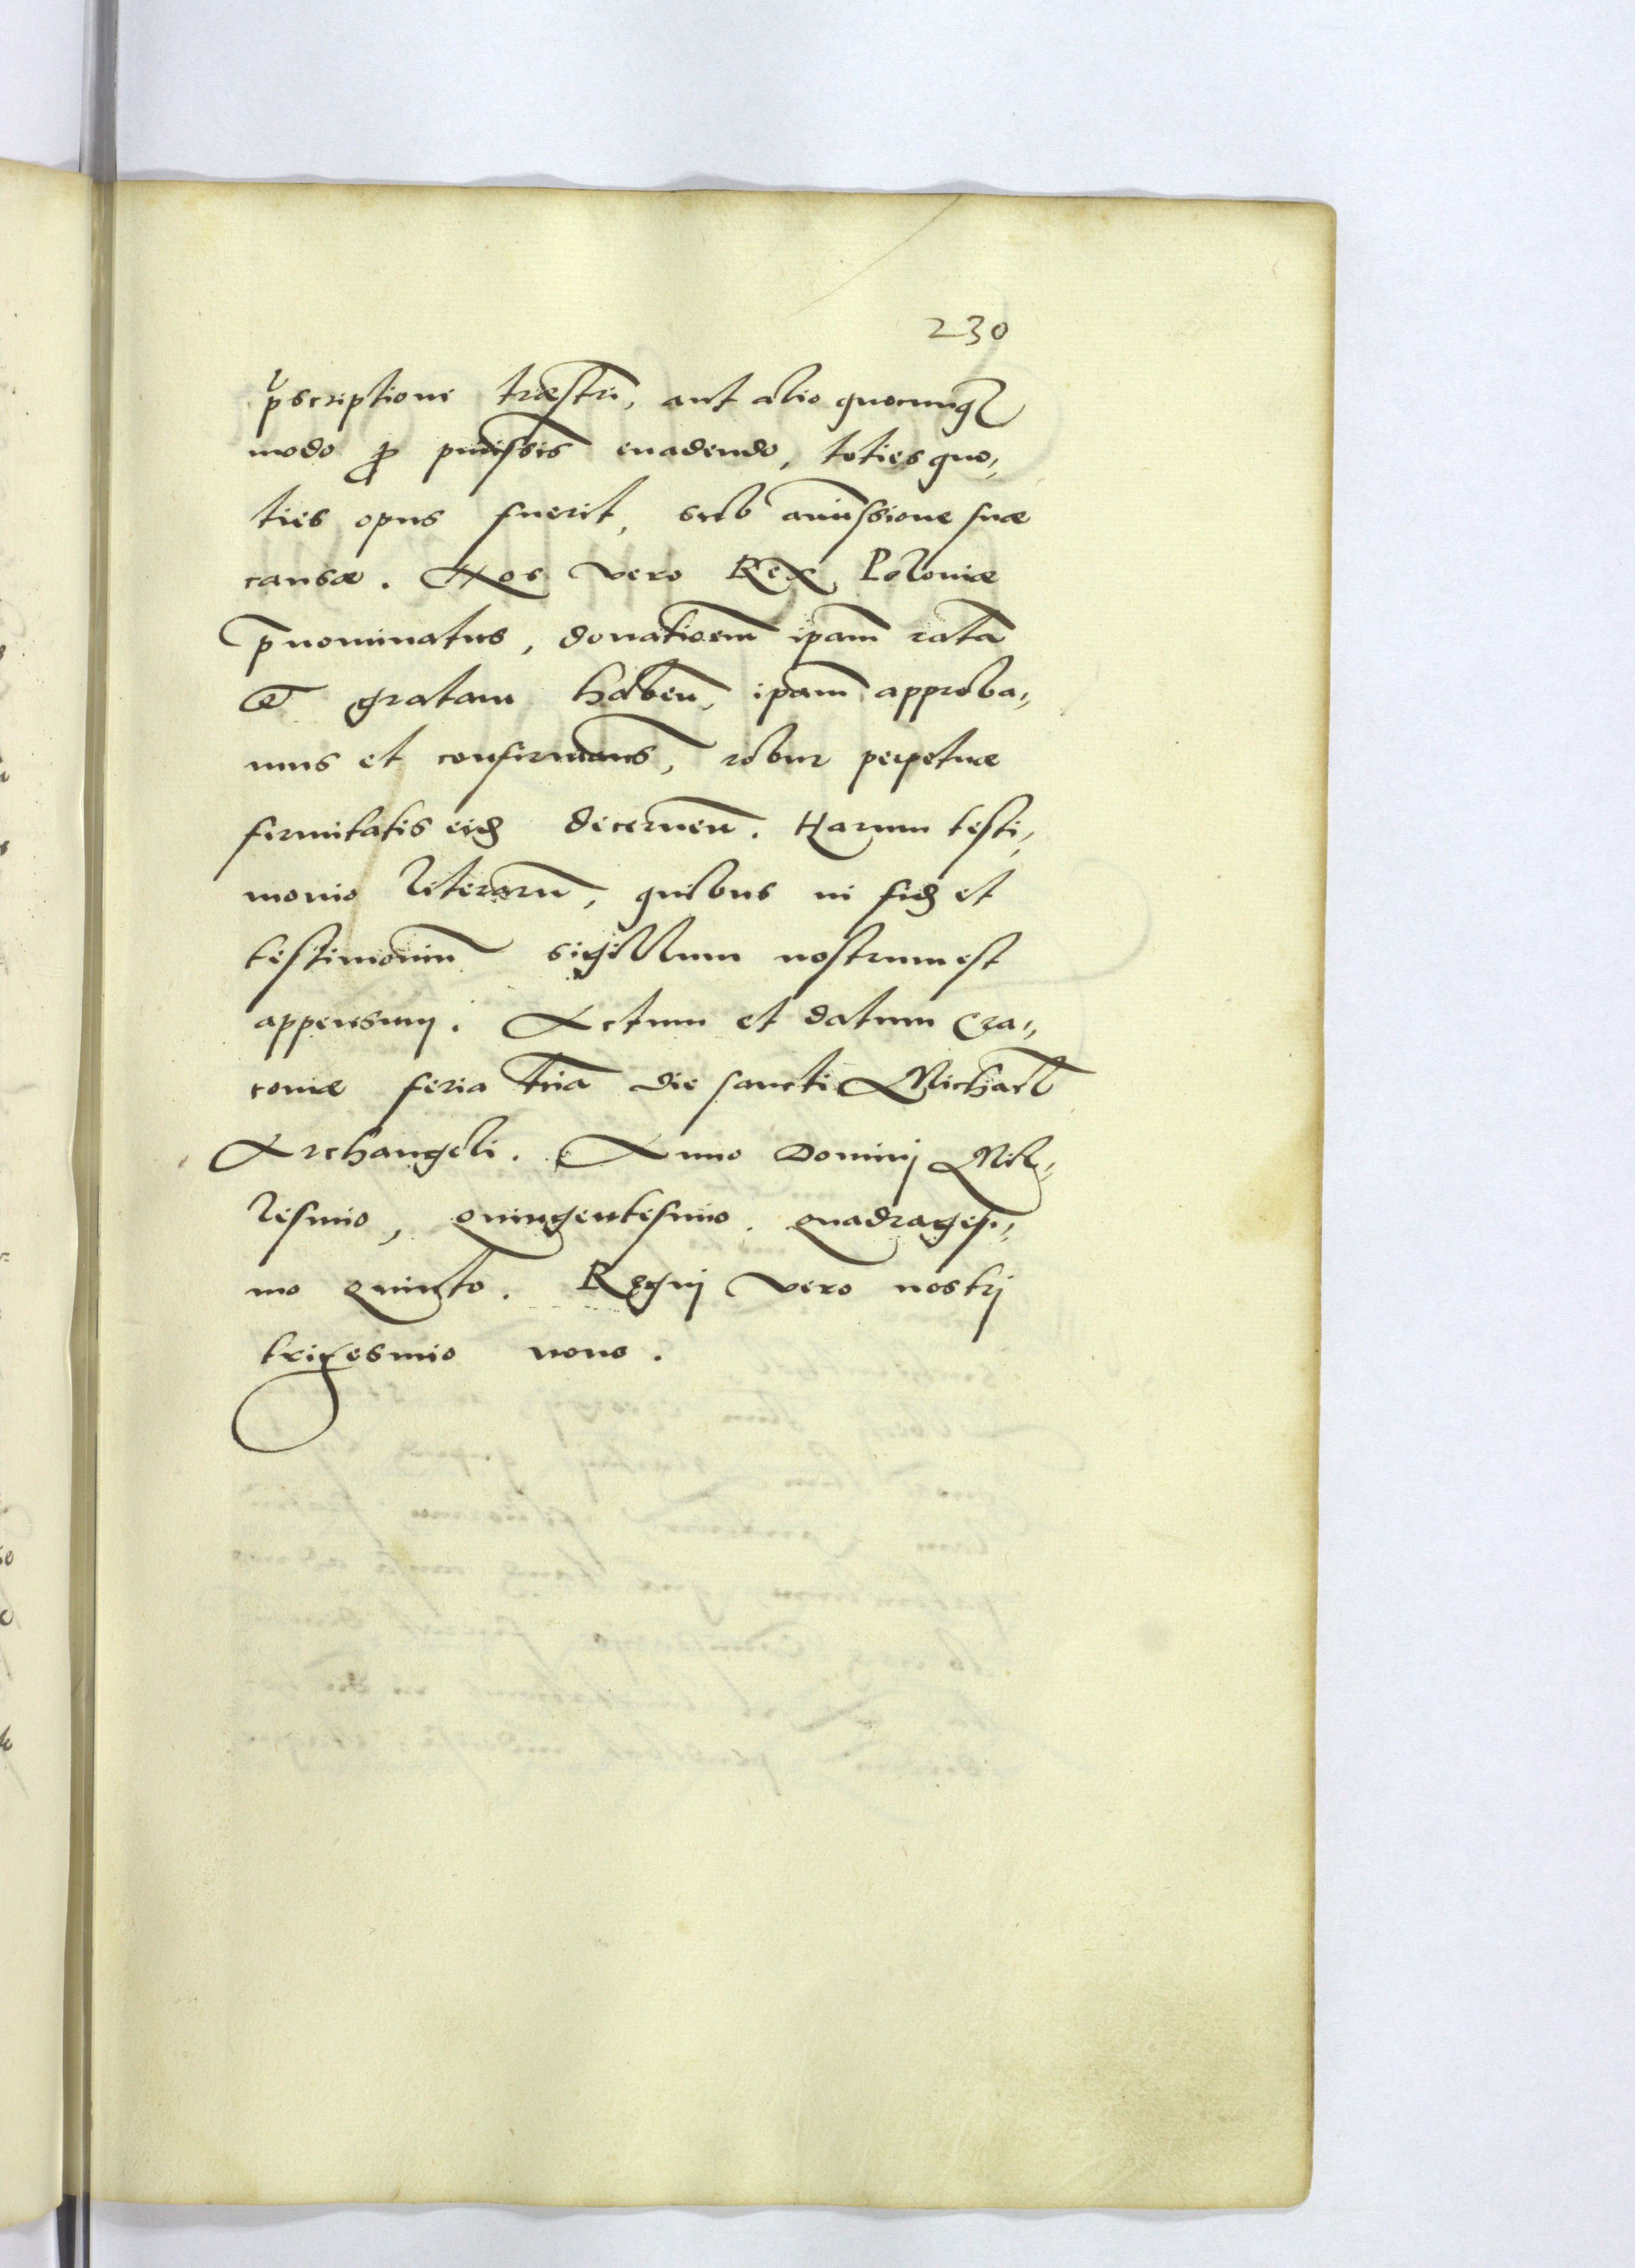 230
p̄scriptioni træstri, aut alio quocunq
modo ꝓ pmissis euadendo, toties quo,,
ties opus fuerit, sub amissione suæ
causæ. Nos vero Rex Poloniæ
p̄nominatus, donatioem̄ ipam̄ ratā
et gratam haben̄, ipam̄ approba,,
mus et confirmams, robur perpetuæ
firmitatis eidȝ decernen̄. Harum testi,,
monio literarū, quibus in fidȝ et
testimoniū sigillum nostrum est
appensum. Actum et datum Cra,,
couiæ feria tria die sancti Michael
Archangeli. Anno Dominj Mil,,
lesimo, quingentesimo. quadragesi,,
mo quinto. Regnj vero nostrj
trigesimo nono.